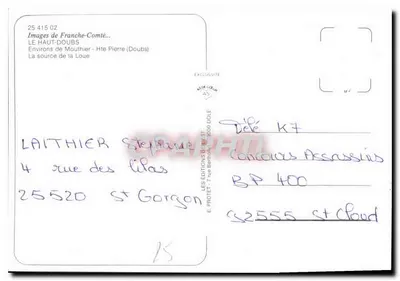 25 415 02
Images de Franche-Comté...
LE HAUT-DOUBS
Environs de Mouthier - Hte Pierre (Doubs)
La source de la Loue
LAITHIER Stephanie
4 rue des lilas
25520 St Gorgon
Télé K7
Concours Assassins
BP 400
92555 St Cloud
LES ÉDITIONS
E. PROTET - 7 rue
DOLE
25